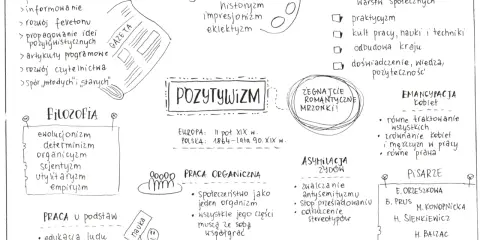 > informowanie
> rozwój feretonu
> propagowanie idei
pozytywistycznych
> artykuły programowe
> rozwój czytelnictwa
> spór „młodych” i „starych”
GAZETA
historyzm
impresjonizm
eklektyzm
warstw społecznych
praktycyzm
kult pracy, nauki i techniki
odbudowa kraju
doświadczenie, wiedza,
pożyteczność
POZYTYWIZM
EUROPA: II poł. XIX w.
POLSKA: 1864-lata 90. XIX w.
ŻEGNAJCIE
ROMANTYCZNE
MRZONKI!
EMANCYPACJA
kobiet
• równe traktowanie
wszystkich
• zrównanie kobiet
i mężczyzn w pracy
• równe prawa
FILOZOFIA
ewolucjonizm
determinizm
organicyzm
scjentyzm
utylitaryzm
empiryzm
PRACA ORGANICZNA
• społeczeństwo jako
jeden organizm
• wszystkie jego części
muszą ze sobą
współgrać
ASYMILACJA
ŻYDÓW
• zwalczanie
antysemityzmu
• stop prześladowaniu
• odrzucenie
stereotypów
PISARZE
E. ORZESZKOWA
B. PRUS
M. KONOPNICKA
H. SIENKIEWICZ
H. BALZAC
PRACA u podstaw
• edukacja ludu
nauka